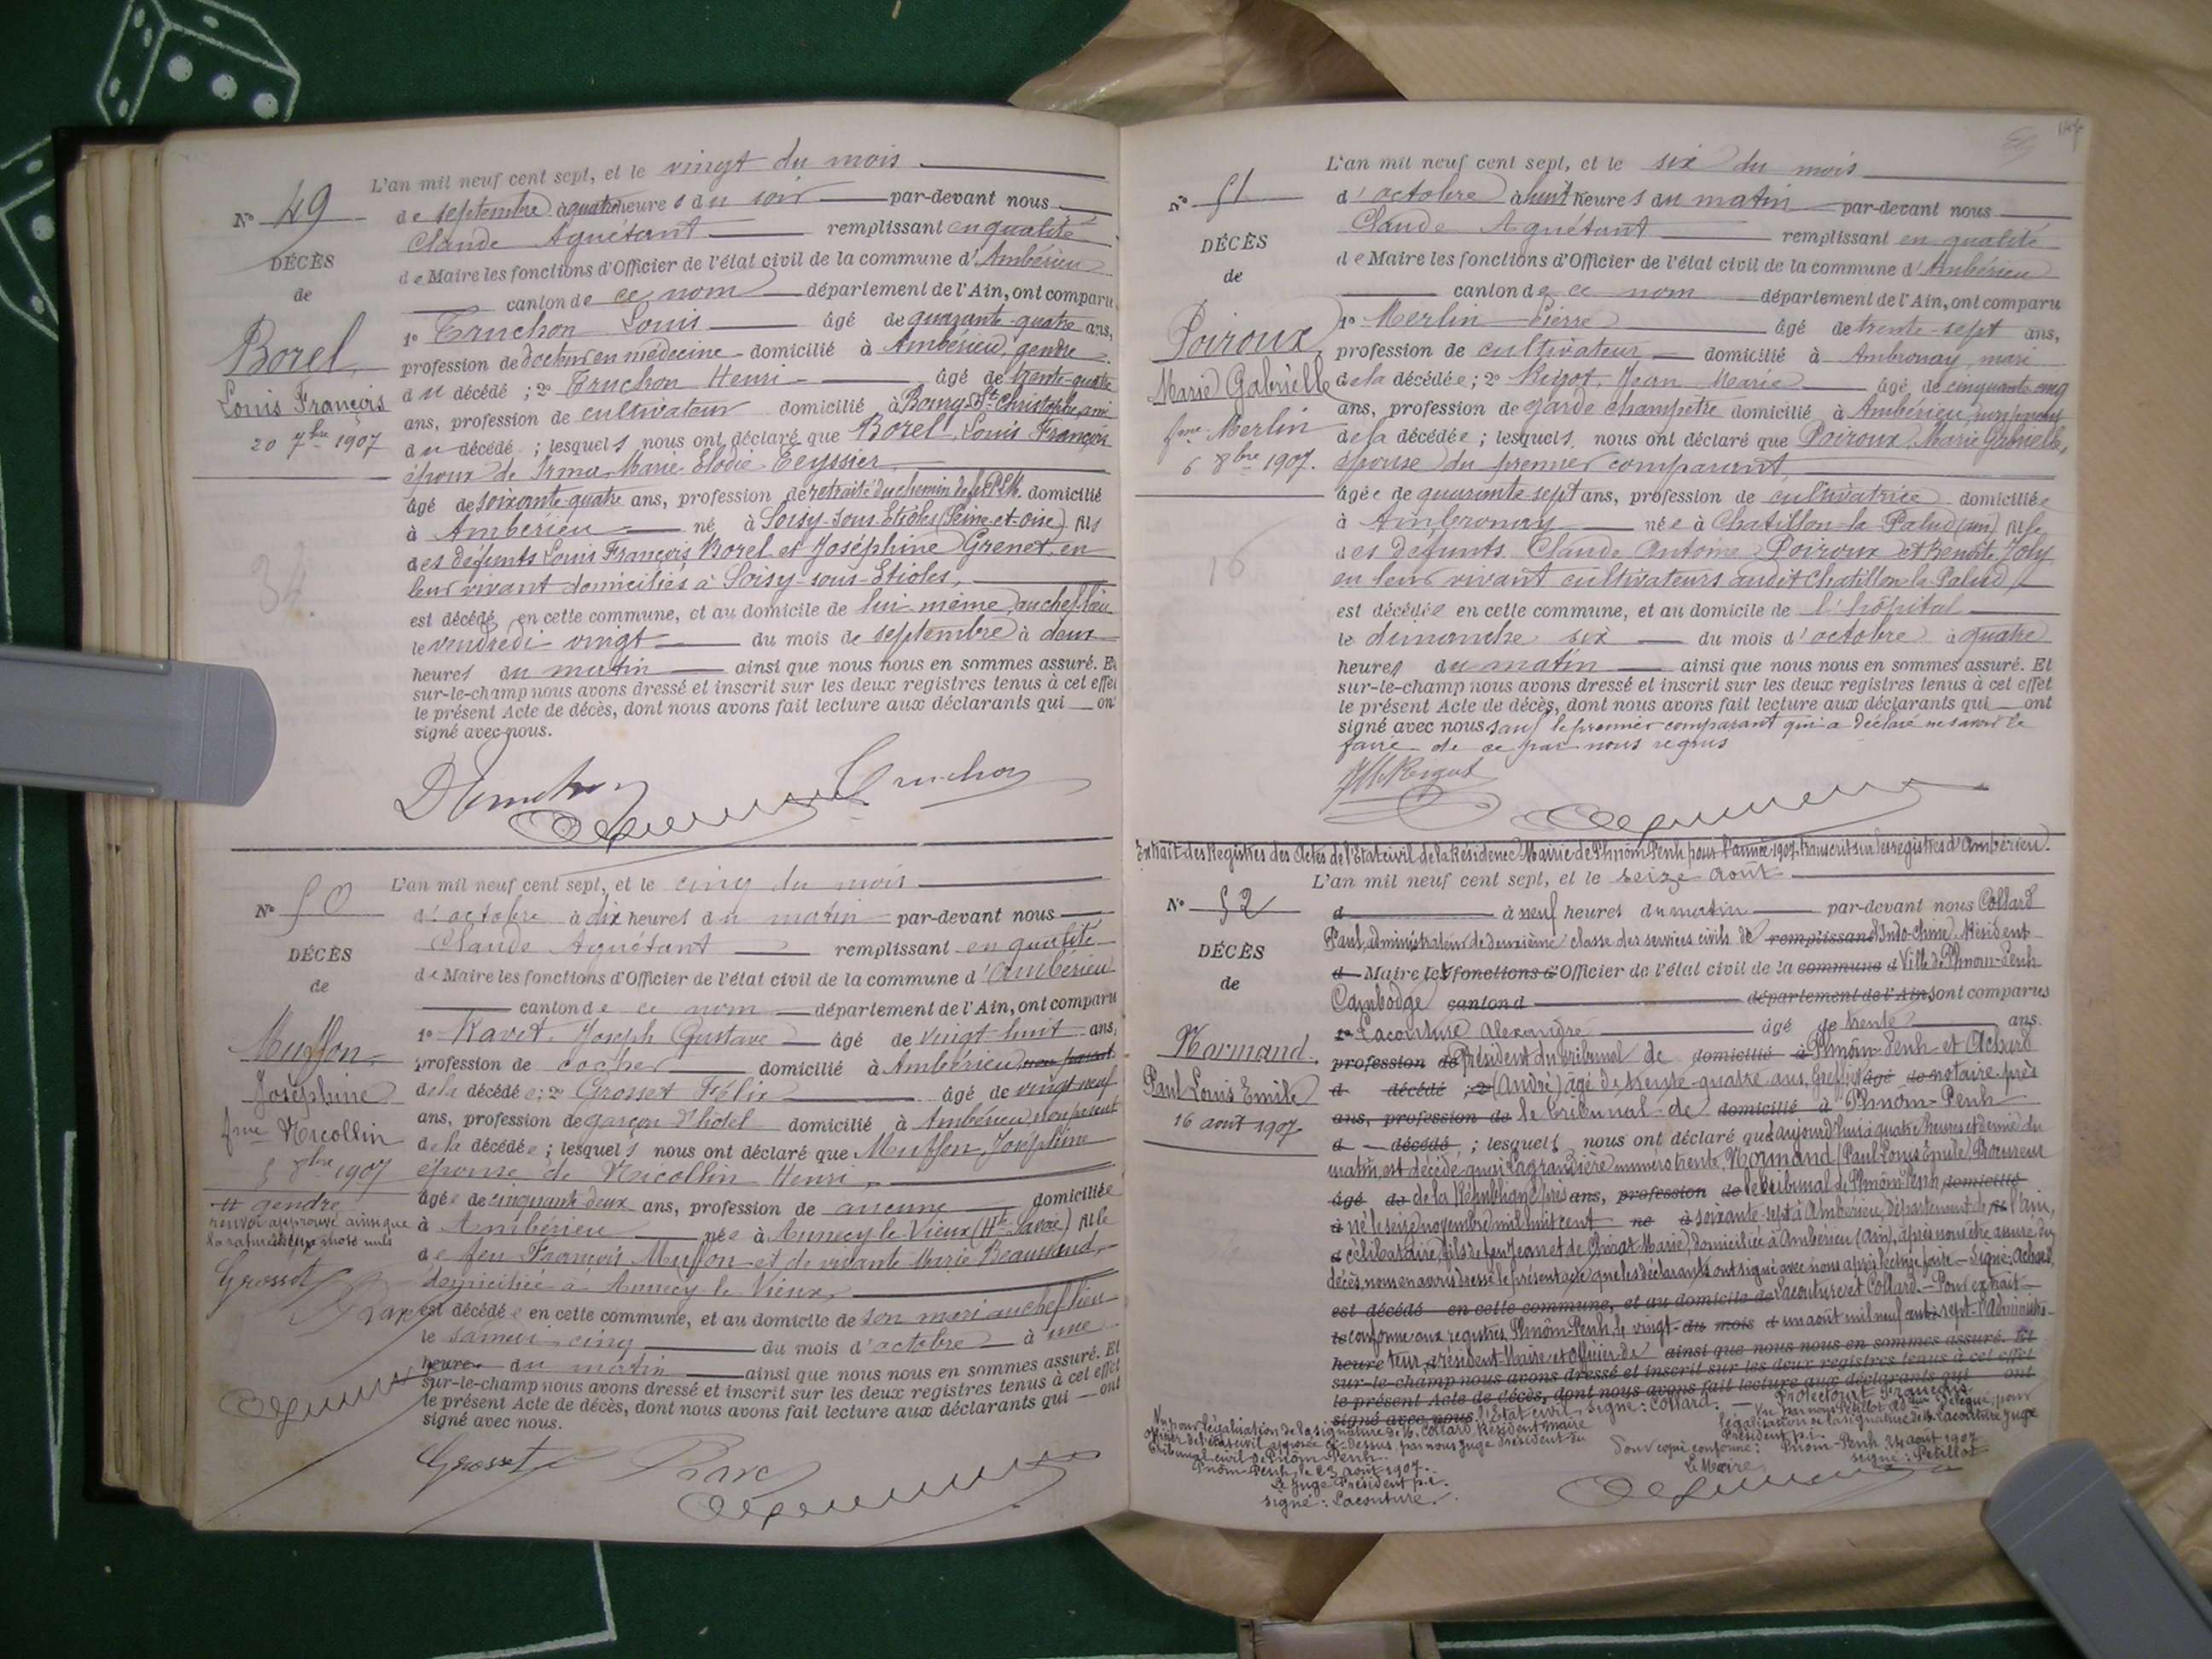 L'an mil neuf cent sept, et le vingt du mois
N° 49 de septembre à quatre heures du soir par-devant nous
Claude Aguétant remplissant en qualité
DÉCÈS
de Maire les fonctions d'Officier de l'état civil de la commune d'Ambérieu
de
canton de ce nom département de l'Ain, ont comparu
1° Truchon Louis âgé de quarante-quatre ans,
Borel
profession de docteur en médecine domicilié à Ambérieu, gendre
du décédé ; 2° Truchon Henri âgé de trente-quatre
Louis François
ans, profession de cultivateur domicilié à Bourg-St-Christophe, ami
20 7bre 1907
du décédé ; lesquels nous ont déclaré que Borel, Louis François
époux de Irma Marie Elodie Teyssier
âgé de soixante-quatre ans, profession de retraité du chemin de fer P.L.M. domicilié
à Ambérieu né à Soisy-sous-Etioles (Seine-et-Oise) fils
34
des défunts Louis François Borel et Joséphine Grenet, en
leur vivant domiciliés à Soisy-sous-Etioles,
est décédé en cette commune, et au domicile de lui-même, au chef-lieu
le vendredi vingt du mois de septembre à deux
heures du matin ainsi que nous nous en sommes assuré. Et
sur-le-champ nous avons dressé et inscrit sur les deux registres tenus à cet effet
le présent Acte de décès, dont nous avons fait lecture aux déclarants qui ont
signé avec nous.
Truchon
L'an mil neuf cent sept, et le cinq du mois
N° 50
d'octobre à dix heures du matin par-devant nous
Claude Aguétant remplissant en qualité
DÉCÈS
de Maire les fonctions d'Officier de l'état civil de la commune d'Ambérieu
de
canton de ce nom département de l'Ain, ont comparu
1° Ravet, Joseph Gustave âgé de vingt-huit ans,
Muffon,
profession de cocher domicilié à Ambérieu non parent
Joséphine
de la décédée ; 2° Grosset Félix âgé de vingt neuf
ans, profession de garçon d'hôtel domicilié à Ambérieu, non parent
fme Nicollin
de la décédée ; lesquels nous ont déclaré que Muffon, Joséphine
5 8bre 1907
épouse de Nicollin Henri,
gendre
âgée de cinquante deux ans, profession de aucune domiciliée
renvoi approuvé ainsi que
la rature de deux mots nuls
à Ambérieu née à Annecy-le-Vieux (Hte-Savoie) fille
de feu François Muffon et de vivante Marie Beaumend,
Grosset
domiciliée à Annecy-le-Vieux,
est décédée en cette commune, et au domicile de son mari au chef-lieu
le samedi cinq du mois d'octobre à une
heure du matin ainsi que nous nous en sommes assuré. Et
sur-le-champ nous avons dressé et inscrit sur les deux registres tenus à cet effet
le présent Acte de décès, dont nous avons fait lecture aux déclarants qui ont
signé avec nous.
Grosset
L'an mil neuf cent sept, et le six du mois
N° 51
d'octobre à huit heures du matin par-devant nous
Claude Aguétant remplissant en qualité
DÉCÈS
de Maire les fonctions d'Officier de l'état civil de la commune d'Ambérieu
de
canton de ce nom département de l'Ain, ont comparu
1° Merlin Pierre âgé de trente-sept ans,
Poiroux
profession de cultivateur domicilié à Ambronay, mari
Marie Gabrielle
de la décédée ; 2° Rigot, Jean Marie âgé de cinquante cinq
ans, profession de garde champêtre domicilié à Ambérieu, non parent
fme Merlin
de la décédée ; lesquels nous ont déclaré que Poiroux, Marie Gabrielle,
6 8bre 1907.
épouse du premier comparant,
âgée de quarante sept ans, profession de cultivatrice domiciliée
à Ambronay née à Chatillon-la-Palud (ain) fille
16
des défunts Claude Antoine Poiroux et Benoite Joly
en leur vivant cultivateurs audit Chatillon-la-Palud,
est décédée en cette commune, et au domicile de l'hôpital
le dimanche six du mois d'octobre à quatre
heures du matin ainsi que nous nous en sommes assuré. Et
sur-le-champ nous avons dressé et inscrit sur les deux registres tenus à cet effet
le présent Acte de décès, dont nous avons fait lecture aux déclarants qui ont
signé avec nous sauf le premier comparant qui a déclaré ne savoir le
faire de ce par nous requis
JM Rigot
Extrait des Registres des Actes de l'Etat civil de la Résidence Mairie de Phnôm-Penh pour l'année 1907, transcrit sur les registres d'Ambérieu.
L'an mil neuf cent sept, et le seize août
N° 52
d à neuf heures du matin par-devant nous Collard
Paul, administrateur de deuxième classe des services civils de remplissant l'Indo-Chine, Résident
DÉCÈS
d Maire les fonctions d'Officier de l'état civil de la commune d Ville de Phnom-Penh
de
Cambodge canton d département de l'Ain, ont comparus
1° Lacouture Alexandre âgé de trente ans.
Normand.
profession de Président du tribunal de domicilié à Phnôm-Penh et Achard
Paul Louis Emile
d décédé ; 2° (André) âgé de trente-quatre ans, Greffier âgé de notaire près
16 août 1907
ans, profession de le tribunal de domicilié à Phnom-Penh
d décédé ; lesquels nous ont déclaré que aujourd'hui à quatre heures et demie du
matin, est décédé quai Lagrandière numéro trente, Normand (Paul Louis Emile) Procureur
âgé de de la République près ans, profession de le tribunal de Phnôm-Penh, domicilié
à né le seize novembre mil huit cent né à soixante-sept à Ambérieu, département de fils l'Ain,
d célibataire, fils de feu Jean et de Marie, domiciliée à Ambérieu (Ain), après nous être assuré du
décès, nous en avons dressé le présent acte que les déclarants ont signé avec nous après lecture faite. Signé : Achard,
est décédé en cette commune, et au domicile de Lacouture et Collard. Pour extrait
le conforme aux registres. Phnôm-Penh, le vingt-du mois d un août mil neuf cent sept. L'Administra-
heure teur, président-Maire et Officier de ainsi que nous nous en sommes assuré. Et
sur-le-champ nous avons dressé et inscrit sur les deux registres tenus à cet effet
le présent Acte de décès, dont nous avons fait lecture aux déclarants qui ont
signé avec nous. l'Etat civil, signé : Collard. Protectorat Français
Vu pour légalisation de la signature de M. Collard Résident Maire
officier de l'état civil apposée ci-dessus, par nous Juge Président du
Tribunal civil de Pnôm-Penh.
Pnôm-Penh, le 23 août 1907.
Le Juge Président p.i.
signé : Lacouture.
Vu par nous Petillot délégué, pour
légalisation de la signature de M. Lacouture Juge
Président p.i.
Pnôm-Penh 24 août 1907
signé : Petillot
Pour copie conforme :
Le Maire